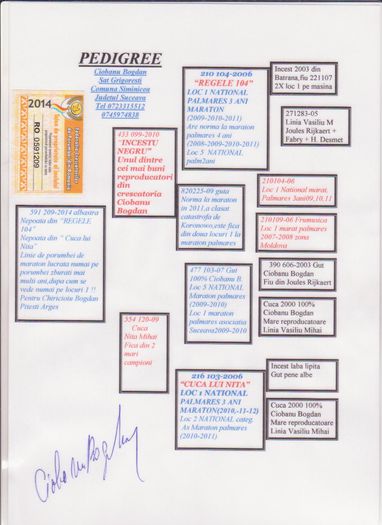 PEDIGREE
Ciobanu Bogdan
Sat Grigoresti
Comuna Siminicea
Judetul Suceava
Tel 0723315512
0745974838
2014
RO 0591209
591 209-2014 albastra
Nepoata din "REGELE
104"
Nepoata din " Cuca lui
Nita"
Linie de porumbei de
maraton lucrata numai pe
porumbei zburati mai
multi ani,dupa cum se
vede numai pe locuri 1 !!
Pentru Chiricioiu Bogdan
Pitesti Arges
433 099-2010
"INCESTU
NEGRU"
Unul dintre
cei mai buni
reproducatori
din
crescatoria
Ciobanu
Bogdan
554 120-09
Cuca
Nita Mihat
Fica din 2
mari
campioni
210 104-2006
"REGELE 104"
LOC 1 NATIONAL
PALMARES 3 ANI
MARATON
(2009-2010-2011)
Are norma la maraton
palmares 4 ani
(2008-2009-2010-2011)
Loc 5 NATIONAL
palm2ani
820225-09 guta
Norma la maraton
in 2011,a clasat
catastrofa de
Koronowo,este fica
din doua locuri 1 la
maraton palmares
477 103-07 Gut
100% Ciobanu B.
Loc 5 NATIONAL
Maraton palmares
(2009-2010)
Loc 1 maraton
palmares asociatia
Suceava2009-2010
216 103-2006
"CUCA LUI NITA"
LOC 1 NATIONAL
PALMARES 3 ANI
MARATON(2010,-11-12)
Loc 2 NATIONAL categ.
As Maraton palmares
(2010-2011)
Incest 2003 din
Batrana,fiu 221107
2X loc 1 pe masina
271283-05
Linia Vasiliu M
Joules Rijkaert +
Fabry + H. Desmet
210104-06
Loc 1 National marat.
Palmares 3ani09,10,11
210109-06 Frumusica
Loc 1 marat palmares
2007-2008 zona
Moldova
390 606-2003 Gut
Ciobanu Bogdan
Fiu din Joules Rijkaert
Cuca 2000 100%
Ciobanu Bogdan
Mare reproducatoare
Linia Vasiliu Mihai
Incest laba lipita
Gut pene albe
Cuca 2000 100%
Ciobanu Bogdan
Mare reproducatoare
Linia Vasiliu Mihai